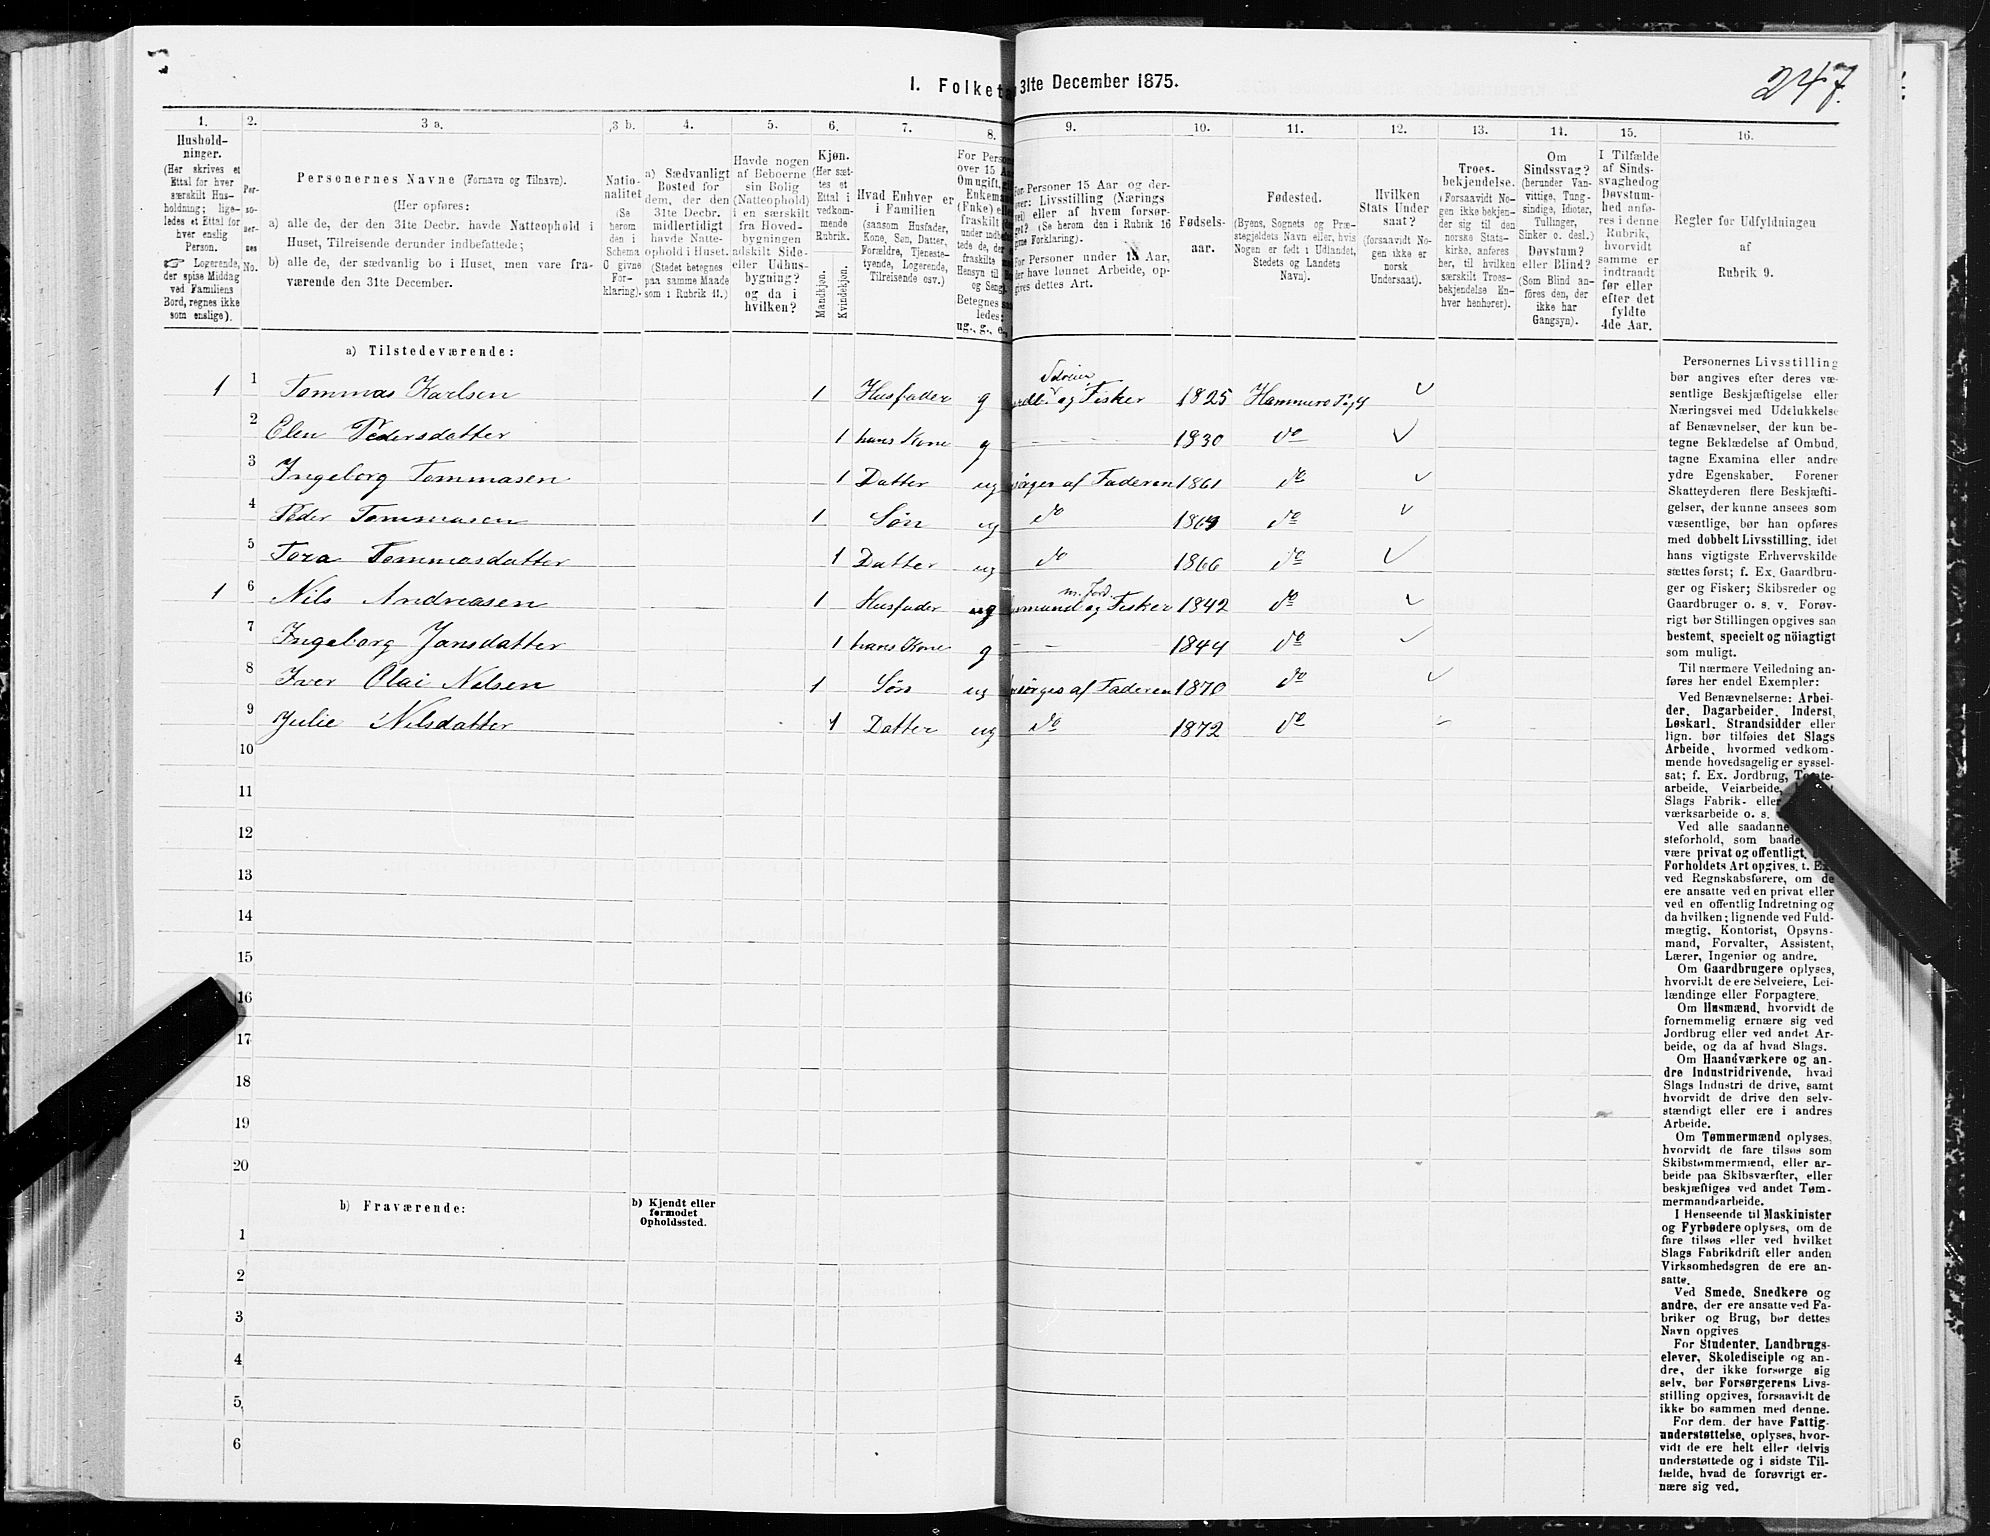 247.
I. Folketa 31te December 1875.
1. 2. 3 a. 3 b. 4. 5. 6. 7. 8. 9. 10. 11. 12. 13. 14. 15. 16.
Hushold-
ninger.
(Her skrives et
Ettal for hver
særskilt Hus-
holdning; lige-
ledes et Ettal for
hver enslig
Person.
☞ Logerende,
der spise Middag
ved Familiens
Bord, regnes ikke
som enslige).
Per-
so-
ner-
nes
No.
Personernes Navne (Fornavn og Tilnavn).
(Her opføres:
a) alle de, der den 31te Decbr. havde Natteophold i
Huset, Tilreisende derunder indbefattede;
b) alle de, der sædvanlig bo i Huset, men vare fra-
værende den 31te December.
Natio-
nalitet
(Se
herom
den i
Schema
6 givne
For-
klaring).
a) Sædvanligt
Bosted for
dem, der den
31te Decbr.
midlertidigt
havde Natte-
ophold i Huset.
(Stedet betegnes
paa samme Maade
som i Rubrik 11.)
Havde nogen
af Beboerne
sin Bolig
(Natteophold)
i en særskilt
fra Hoved-
bygningen
adskilt Side-
eller Udhus-
bygning?
og da i
hvilken?
Kjøn.
(Her sæt-
tes et
Ettal i
vedkom-
mende
Rubrik.
Mandkjøn.
Kvindekjøn.
Hvad Enhver er
i Familien
(saasom Husfader,
Kone, Søn, Datter,
Forældre, Tjeneste-
tyende, Logerende,
Tilreisende osv.)
For Perso
over 15 A
Om ugift,
Enkema
(Enke) el
fraskilt
ledes:
ug., g., e.,
For Personer 15 Aar og der-
over: Livsstilling (Nærings
vei) eller af hvem forsør-
get? (Se herom den i Rubrik 16
givne Forklaring).
For Personer under 15 Aar,
der have lønnet Arbeide, op-
gives dettes Art.
Fødsels-
aar.
Fødested.
(Byens, Sognets og Præ-
stegjeldets Navn eller, hvis
Nogen er født i Udlandet,
Stedets og Landets
Navn).
Hvilken
Stats Under
saat?
(forsaavidt No-
gen ikke er
norsk
Undersaat).
Troes-
bekjendelse.
(Forsaavidt No-
gen ikke bekjen-
der sig til den
norske Stats-
kirke, anføres
her, til hvilken
særskilt Troes-
bekjendelse En-
hver henhører).
Om
Sindssvag?
(herunder Van-
vittige, Tung-
sindige, Idioter,
Tullinger,
Sinker o. desl.)
Døvstum?
eller Blind?
(Som Blind an-
føres den, der
ikke har
Gangsyn).
I Tilfælde
af Sinds-
svaghed og
Døvstum-
hed anfø-
res i denne
Rubrik,
hvorvidt
samme er
indtraadt
før eller
efter det
fyldte
4de Aar.
Regler for Udfyldningen
af
Rubrik 9.
a) Tilstedeværende:
1 1 Tommas Karlsen 1 Husfader g Selveier og Fisker 1825 Hammerø
2 Elen Pedersdatter 1 hans Kone g 1830 do
3 Ingeborg Tommasen 1 Datter ug sørges af Faderen 1861 do
4 Peder Tommasen 1 Søn ug do do
5 Tora Tommasdatter 1 Datter ug do 1866 do
1 6 Nils Andreasen 1 Husfader m. Jord. og Fisker 1842 do
7 Ingeborg Jansdatter 1 hans Kone g 1844 do
8 Iver Olai Nilsen 1 Søn ug sørges af Faderen 1870 do
9 Julie Nilsdatter 1 Datter ug do 1872 do
10
11
12
13
14
15
16
17
18
19
20
b) Fraværende:
b) Kjendt eller
formodet
Opholdssted.
1
2
3
4
5
6
Personernes Livsstilling
bør angives efter deres væ-
sentlige Beskjæftigelse eller
Næringsvei med Udelukkelse
af Benævnelser, der kun be-
tegne Beklædelse af Ombud,
tagne Examina eller andre
ydre Egenskaber. Forener
Skatteyderen flere Beskjæfti-
gelser, der kunne ansees som
væsentlige, bør han opføres
med dobbelt Livsstilling, idet
hans vigtigste Erhvervskilde
sættes først; f. Ex. Gaardbru-
ger og Fisker; Skibsreder og
Gaardbruger o. s. v. Forøv-
rigt bør Stillingen opgives saa
bestemt, specielt og nöiagtigt
som muligt.
Til nærmere Veiledning an-
føres her endel Exempler:
Ved Benævnelserne: Arbei-
der, Dagarbeider, Inderst,
Løskarl, Strandsidder eller
lign. bør tilføies det Slags
Arbeide, hvormed vedkom-
mende hovedsagelig er syssel-
sat; f. Ex. Jordbrug,
arbeide, Veiarbeide,
Slags Fabrik- eller
værksarbeide o. s.
Ved alle saadanne
steforhold, som baade
være privat og offentligt,
Forholdets Art opgives, f. Ex.
ved Regnskabsførere, om de
ere ansatte ved en privat eller
ved en offentlig Indretning og
da hvilken; lignende ved Fuld-
mægtig, Kontorist, Opsyns-
mand, Forvalter, Assistent,
Lærer, Ingeniør og andre.
Om Gaardbrugere oplyses,
hvorvidt de ere Selveiere, Lei-
lændinge eller Forpagtere.
Om Husmænd, hvorvidt de
fornemmelig ernære sig ved
Jordbrug eller ved andet Ar-
beide, og da af hvad Slags.
Om Haandværkere og an-
dre Industridrivende, hvad
Slags Industri de drive, samt
hvorvidt de drive den selv-
stændigt eller ere i andres
Arbeide.
Om Tømmermænd oplyses,
hvorvidt de fare tilsøs som
Skibstømmermænd, eller ar-
beide paa Skibsværfter, eller
beskjæftiges ved andet Tøm-
mermandsarbeide.
I Henseende til Maskinister
og Fyrbødere oplyses, om de
fare tilsøs eller ved hvilket
Slags Fabrikdrift eller anden
Virksomhedsgren de ere an-
satte.
Ved Smede, Snedkere og
andre, der ere ansatte ved Fa-
briker og Brug, bør dettes
Navn opgives
For Studenter, Landbrugs-
elever, Skoledisciple og an-
dre, der ikke forsørge sig
selv, bør Forsørgerens Livs-
stilling opgives, forsaavidt de
ikke bo sammen med denne.
For dem, der have Fattig-
understøttelse, oplyses, hvor-
vidt de ere helt eller delvis
understøttede og i sidste Til-
fælde, hvad de forøvrigt er-
nære sig ved.